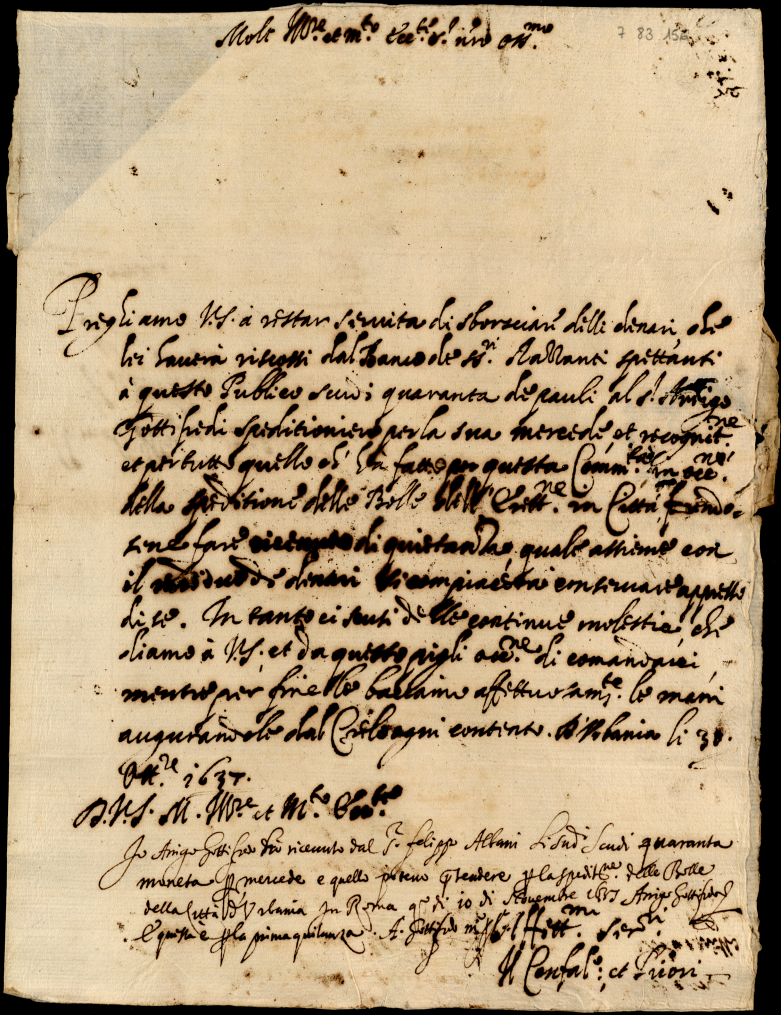 7 83 156
Molt Ill.re et m.to Ecc.te S.r n.ro oss.mo
Preghiamo V.S. à restar servita di sborsciare delli denari, che
lei haverà riscossi dal Banco de SS.ri spettanti
à questo Publico scudi quaranta de pauli al S.r Arrigo
Gottifredi speditioniero per la sua mercede, et recognit.ne
et per tutto quello ch' hà fatto per questa Comm.tà in occ.ne
della speditione delle Bolle dell' Erett.ne in Città,
fare di quietanza quale assieme con
il residuo de denari si compiacerà conservare appresso
di se. In tanto ci scusi delle continue molestie, che
diamo à V.S. et da questo pigli occ.ne di comandarci
mentre per fine le baciamo affettuosam.te le mani
augurandole dal Ciel ogni contento. D'Urbania li 30.
Ott.re 1637.
D.V.S. M. Ill.re et M.to Ecc.te
Io Arrigo Gottifredi ho ricevuto dal S.r Felippo Albani li sud.i scudi quaranta
moneta p mercede e quello potevo ptendere p la spedit.ne delle Bolle
della Città d'Urbania in Roma q.o dì 10 di Novembre 1637 Arrigo Gottifredi
E questa è p la prima quitanza. A. Gottifredi m.o pp.a
Aff.ett.mi Ser.ri
Il Confal.re et Priori